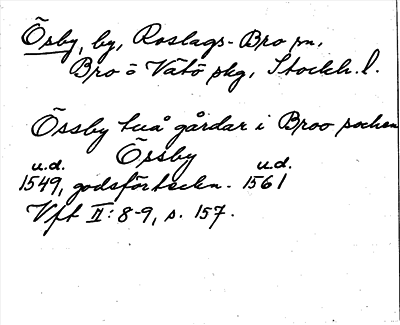 Ösby, by, Roslags-Bro sn,
Bro o Vätö skg, Stockh. l.
Össby två gårdar i Broo sochen
u.d. Örsby u.d.
1549, godsförteckn. 1561
Vft II: 8-9, s. 157.